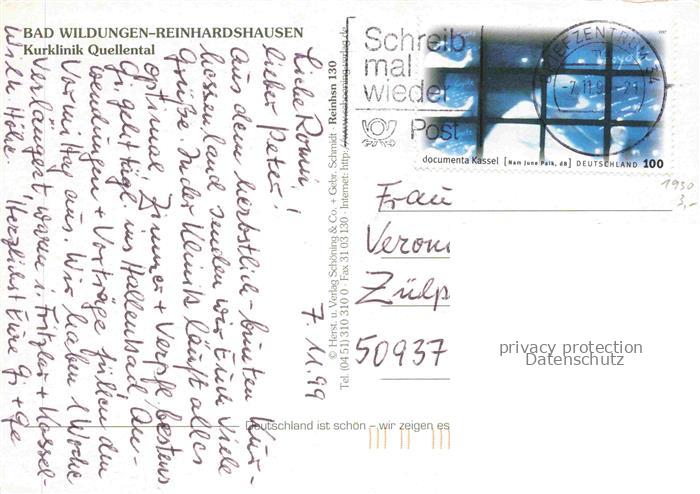 BAD WILDUNGEN-REINHARDSHAUSEN
Kurklinik Quellental
7. 11. 99
Liebe Romi,
lieber Peter!
Aus dem herbstlich-bunten Kur-
hessenland senden wir Euch viele
Grüße. In der Klinik läuft alles
optimal, Zimmer + Verpfl. bestens.
Gi. geht tägl. ins Hallenbad. An-
wendungen + Vorträge füllen den
Vormittag aus. Wir haben 1 Woche
verlängert, waren i. Fritzlar + Kassel-
Wilh. Höhe. Herzlichst Eure Gi + Ge
© Herst. u. Verlag Schöning & Co. + Gebr. Schmidt · Reinhsn 130
Tel. (04 51) 310 310 0 · Fax 31 03 130 · Internet: http://www.schoening-verlag.de
Schreib
mal
wieder
Post
BRIEFZENTRUM
-7.11.9 -21
documenta Kassel [Nam June Paik, d8] DEUTSCHLAND 100
1997
1930
3,-
Frau
Veroni
Zülp
50937
privacy protection
Datenschutz
Deutschland ist schön – wir zeigen es